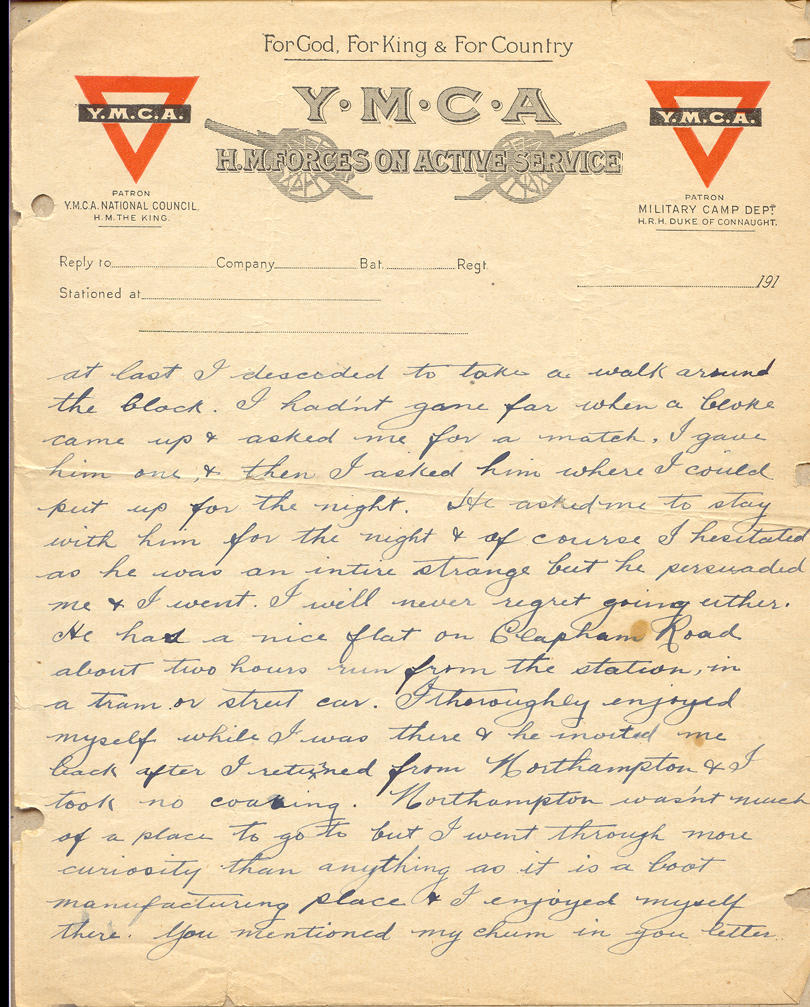 For God, For King & For Country
Y.M.C.A.
Y·M·C·A
Y.M.C.A.
H.M. FORCES ON ACTIVE SERVICE
PATRON
Y.M.C.A. NATIONAL COUNCIL.
H.M. THE KING.
PATRON
MILITARY CAMP DEPT.
H.R.H. DUKE OF CONNAUGHT.
Reply to Company Bat. Regt.
191
Stationed at
at last I descided to take a walk around
the block. I hadn't gone far when a bloke
came up & asked me for a match, I gave
him one, & then I asked him where I could
put up for the night. He asked me to stay
with him for the night & of course I hesitated
as he was an intire strange but he persuaded
me & I went. I will never regret going either.
He had a nice flat on Clapham Road
about two hours run from the station, in
a tram or street car. I thoroughly enjoyed
myself while I was there & he invited me
back after I returned from Northampton & I
took no coaxing. Northampton wasn't much
of a place to go to but I went through more
curiosity than anything as it is a boot
manufacturing place & I enjoyed myself
there. You mentioned my chum in you letter